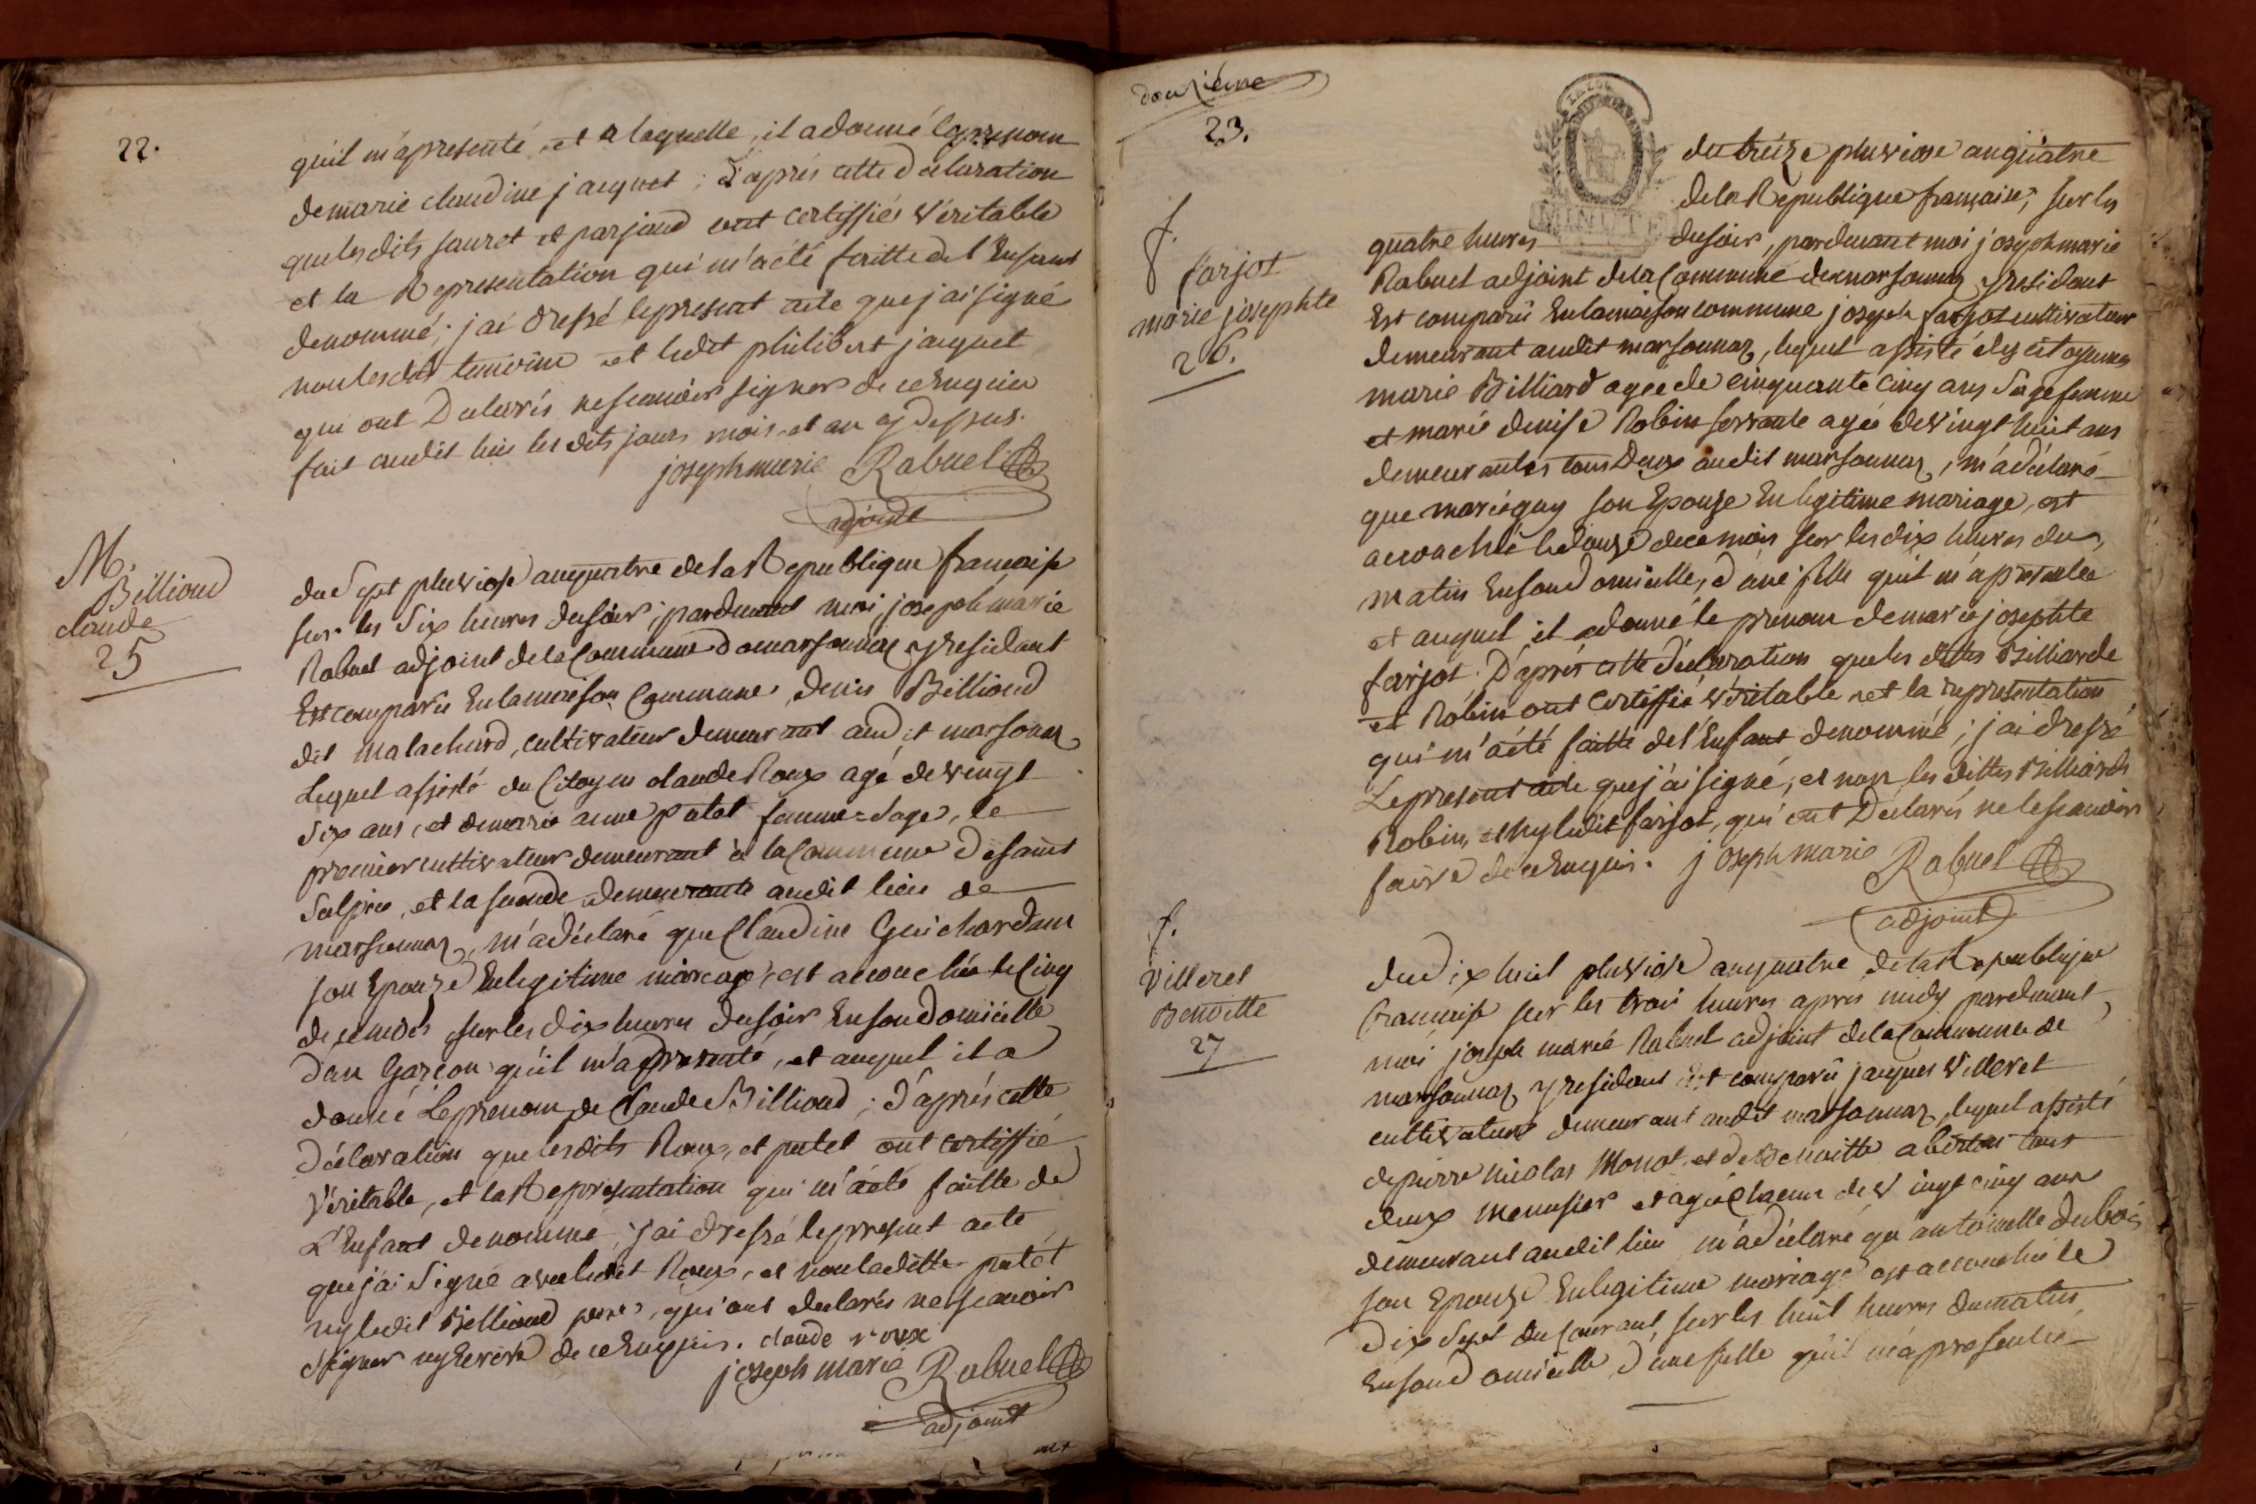 22.
qu'il m'a presenté, et a laquelle, il a donné le prenom
de marie claudine jacquet ; d'aprés cette declaration
que lesdits sauret et parjaud ont certiffiés véritable
et la Representation qui m'a été faitte de l'Enfant
denommé ; j'ai dressé le present acte que j'ai signé
non lesdits temoins et ledit philibert jacquet
qui ont Declarés ne scauoir signer de ce Enquis
fait audit lieu les dits jours mois et an cy dessus.
joseph marie Rabuel
adjoint
M.
Billioud
claude
25
du Sept pluviose an quatre de la Republique française
sur les Six heures du soir, pardevant moi joseph marie
Rabuel adjoint de la Commune de marsonnaz y residant
Est comparu En la maison Commune, denis Billioud
dit malachard, cultivateur demeurant audit marsonnaz
Lequel assisté du Citoyen claude Roux agé de vingt
Six ans, et de marie anne putet femme=sage, le
premier cultivateur demeurant à la Commune de Saint
Sulpice, et la seconde demeurante audit lieu de
marsonnaz, m'a déclaré que Claudine Guichardan
son Epouze En legitime mariage, est accouchée le Cinq
de ce mois sur les dix heures du soir En son Domicille
d'un Garçon qu'il m'a presenté, et auquel il a
donné Le prenom de Claude Billioud ; d'aprés cette
Déclaration que lesdits Roux, et putet ont certiffié
Véritable, et la Representation qui m'a été faitte de
L'Enfant denommé, j'ai dressé le present acte
que j'ai Signé avec ledit Roux, et non la ditte putet
ny ledit Billioud pere, qui ont declarés ne scauoir
signer ny Ecrire de ce Enquis. claude roux
joseph marie Rabuel
adjoint
douzième
23.
f.
farjot
marie josephte
26.
MINUTE
du treize pluviose an quatre
de la Republique française, sur les
quatre heures du soir, pardevant moi joseph marie
Rabuel adjoint de la Commune de marsonnaz y residant
Est comparu En la maison commune joseph farjot cultivateur
demeurant audit marsonnaz, lequel assisté des citoyennes
marie Billiard agée de cinquante cinq ans sage femme
et marie denise Robin servante agée de vingt huit ans
demeurantes tous Deux audit marsonnaz, m'a déclaré
que marie guy son Epouze En legitime mariage, est
accouchée le douze de ce mois sur les dix heures du
matin En son domicille, d'une fille qu'il m'a presentée
et auquel il a donné le prenom de marie josephte
farjot. D'aprés cette déclaration que les dittes Billiarde
et Robin ont certiffié véritable et la representation
qui m'a été faitte de l'Enfant denommé ; j'ai dressé
Le present acte que j'ai signé, et non les dittes Billiard
Robin, et ny ledit farjot, qui ont Déclarés ne le scauoir
faire de ce Enquis. joseph marie Rabuel
adjoint
f.
Villeret
Benoitte
27
du dix huit pluviose an quatre de la Republique
française sur les trois heures aprés midy pardevant
moi joseph marie Rabuel adjoint de la Commune de
marsonnaz y residant Est comparu jacques Villeret
cultivateur demeurant audit marsonnaz, lequel assisté
de pierre nicolas Monot et de Benoitte tous
deux menusier et agé chacun de vingt cinq ans
demeurant audit lieu m'a déclaré qu'antoinette Dubois
son Epouze En legitime mariage est accouchée le
dix Sept du Courant, sur les huit heures du matin
En son domicille d'une fille qu'il m'a presentée